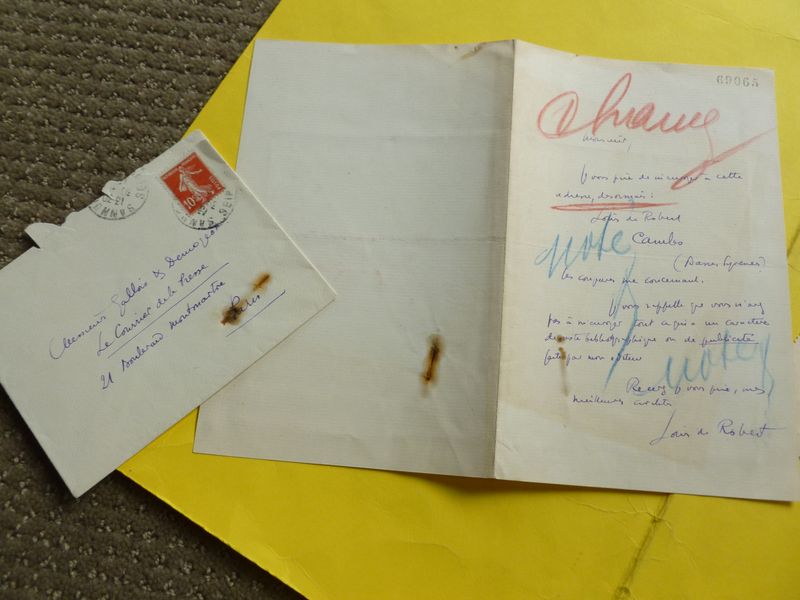 Messieurs Gallois & Demogeot
Le Courrier de la Presse
21 Boulevard Montmartre
Paris
69065
Monsieur,
vous prie de m'envoyer à cette
adresse, désormais :
Louis de Robert
Cambo
(Basses Pyrénées)
les coupures me concernant.
vous rappelle que vous n'avez
pas à m'envoyer tout ce qui a un caractère
bibliographique ou de publicité
par mon éditeur
vous prie, mes
meilleures
Louis de Robert
note
note